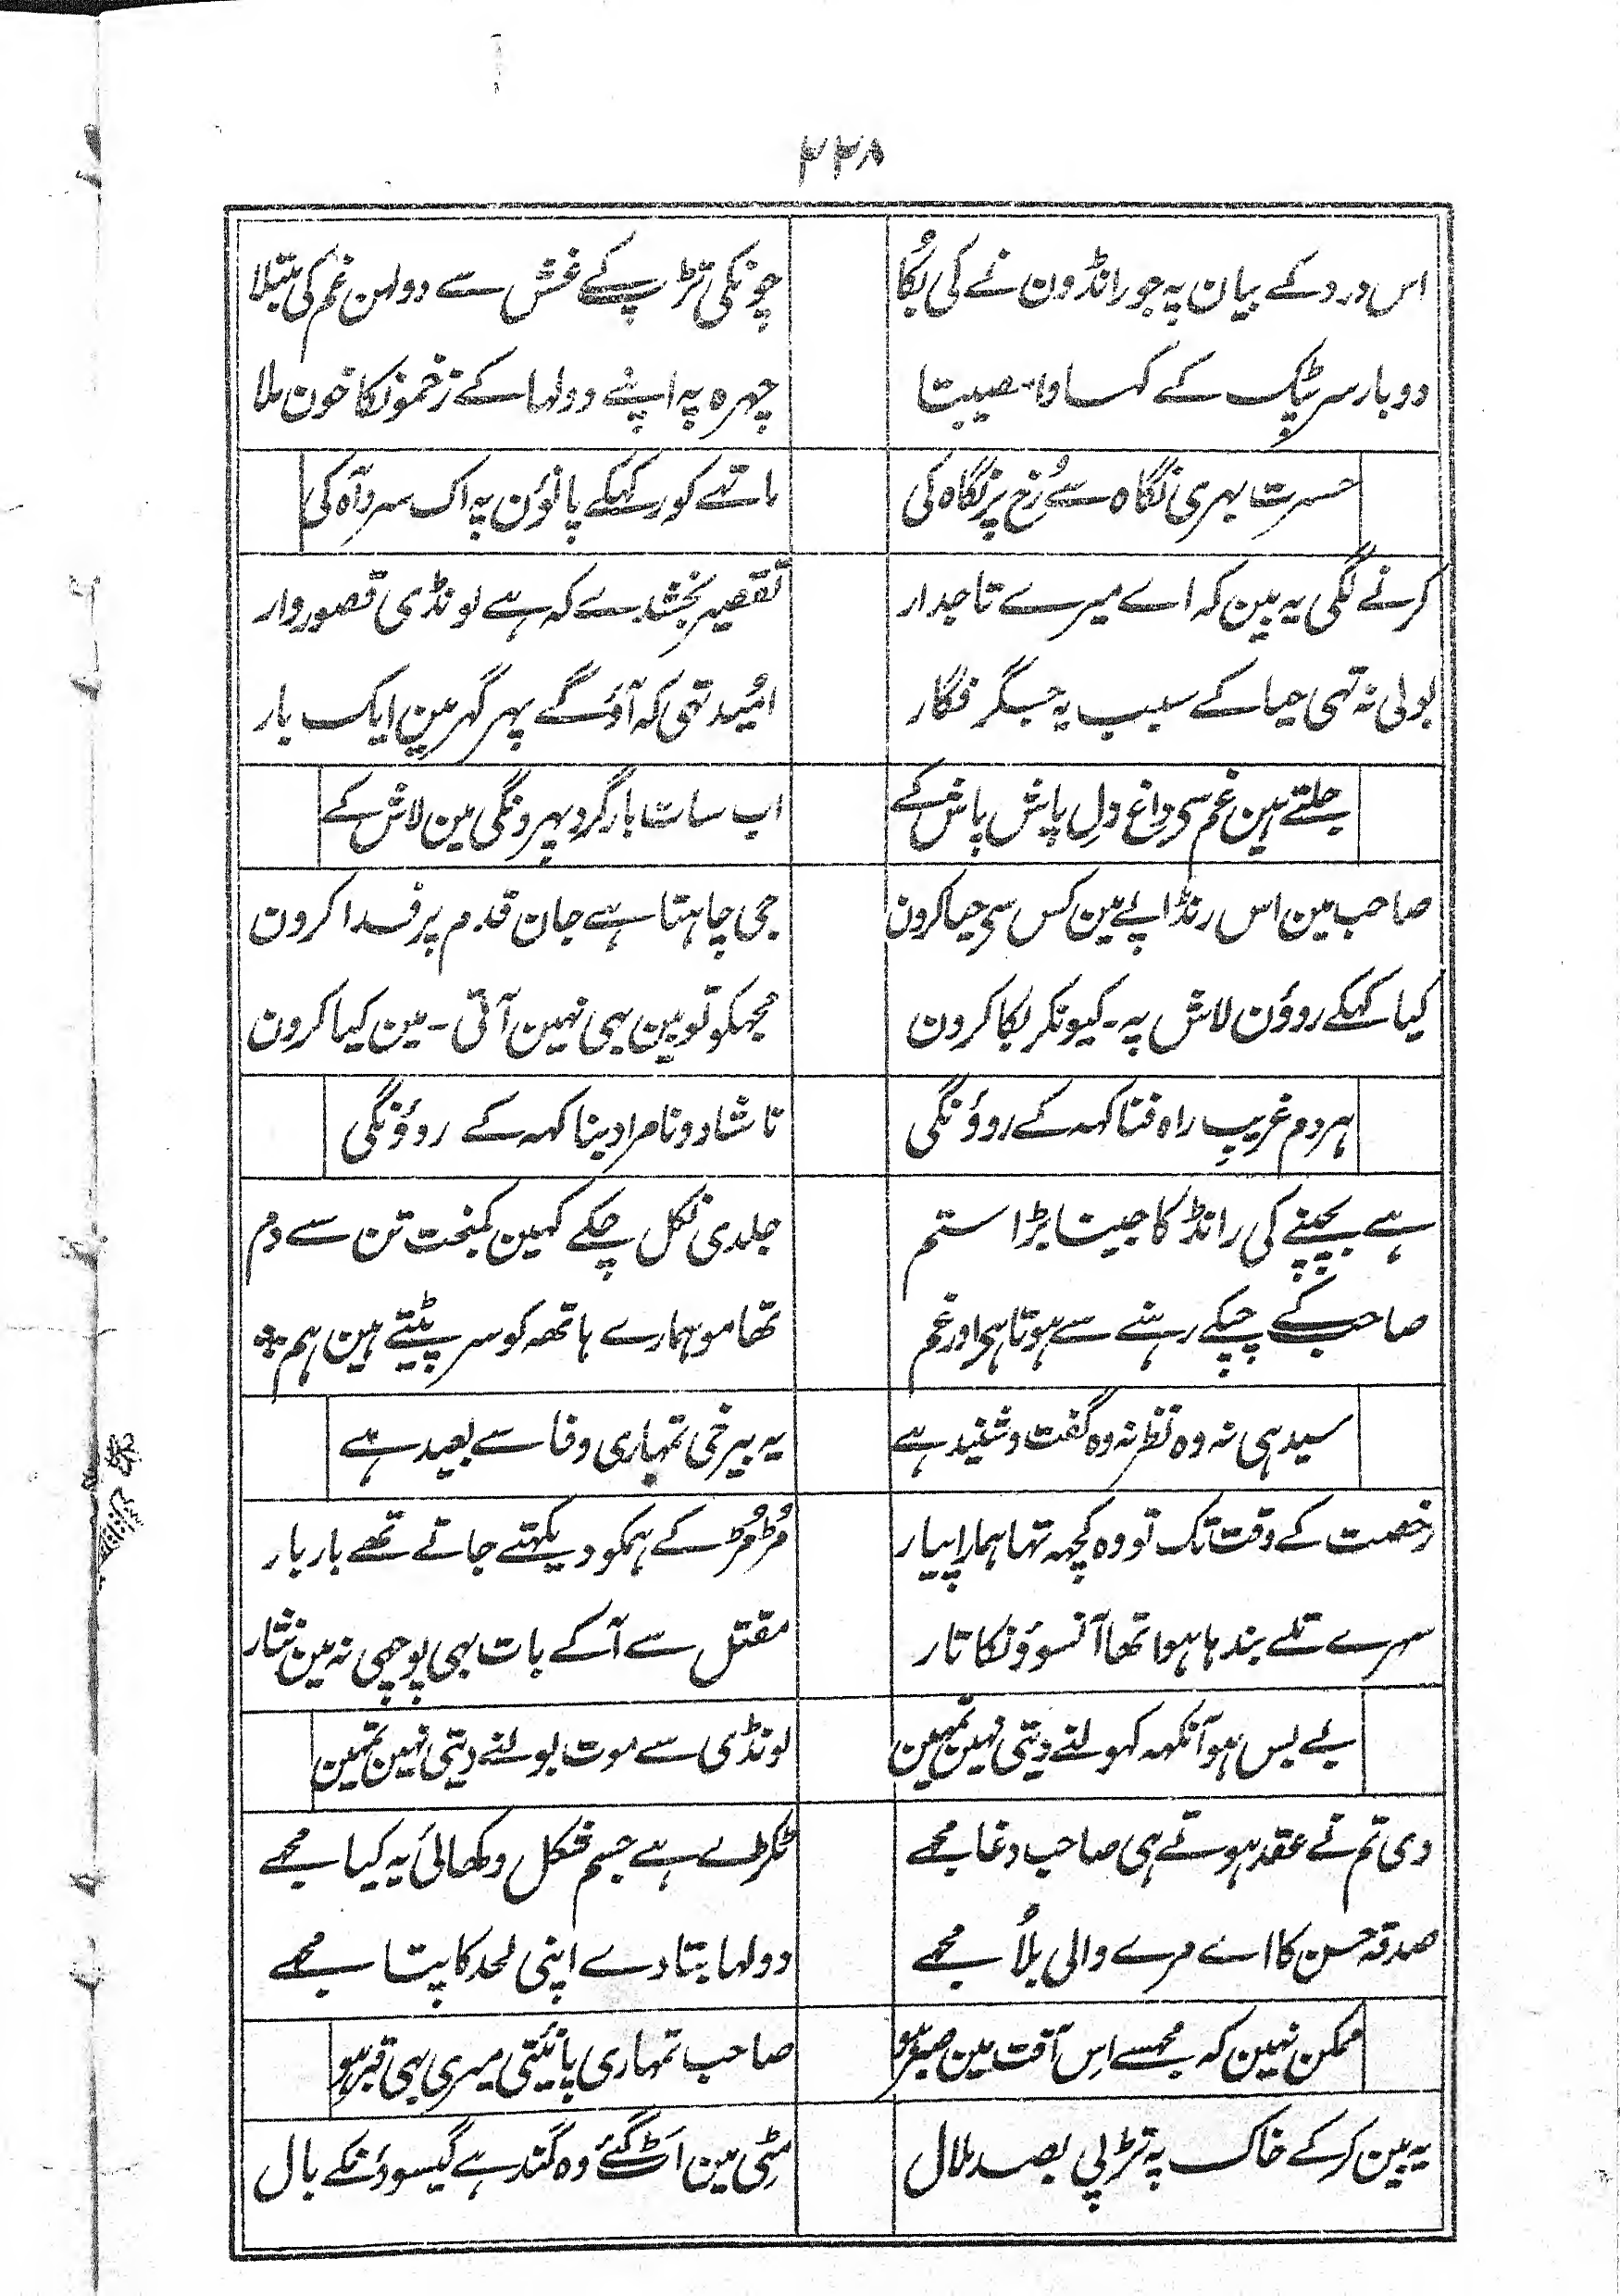 ۲۲۸
اس درد کے بیان پہ جو رانڈون نے کی بُکا چونکی تڑپ کے غش سے دولہن غم کی مبتلا
دو بار سر پٹک کے کہا وا مصیبتا چہرہ پہ اپنے دولہا کے زخمونکا خون ملا
حسرت بہری نگاہ سے رُخ پر نگاہ کی ماتہے کو رکہکے پانوٴن پہ اک سرد آہ کی
کرنے لگی یہ بین کہ اے میرے تاجدار تقصیر بخشدے کہ ہے لونڈی قصوروار
بولی نہ تہی حیا کے سبب یہ جگر فگار اُمید تھی کہ آؤ گے پہر گہر مین ایک بار
جلتے ہین غم سی داغ دلِ پاش پاش کے اب سات بار گرد پہرونگی مین لاش کے
صاحب مین اس رنڈاپے مین کس سی حیا کرون جی چاہتا ہے جان قدم پر فدا کرون
کیا کہکے روؤن لاش پہ۔ کیونکر بکا کرون مجہکو تو بین بہی نہین آتی۔ مین کیا کرون
ہر دم غریبِ راہ فنا کہہ کے روؤنگی ناشاد و نامراد بنا کہہ کے روؤنگی
ہے بچپنے کی رانڈ کا جینا بڑا ستم جلدی نکل چکے کہین کمبخت تن سے دم
صاحب کے چپکے رہنے سے ہوتا ہی اور غم تھامو ہمارے ہاتھہ کو سر پیٹتے ہین ہم
سیدہی نہ وہ نظر نہ وہ گفت و شنید ہے یہ بیرخی تمہاری وفا سے بعید ہے
رخصت کے وقت تک تو وہ کچہہ تہا ہمارا پیار مُڑ مُڑ کے ہمکو دیکہتے جاتے تھے بار بار
سہرے تلے بندہا ہوا تھا آنسوؤنکا تار مقتل سے آ کے بات بہی پوچہی نہ مین نثار
بے بس ہو آنکہہ کہولنے دیتی نہین تمہین لونڈی سے موت بولنے دیتی نہین تمہین
دی تم نے عقد ہوتے ہی صاحب دغا مجھے ٹکڑے ہے جسم شکل دکھائی یہ کیا مجھے
صدقہ حسن کا اے مرے والی بلاُ مجھے دولہا بتا دے اپنی لحد کا پتا مجھے
ممکن نہین کہ مجہسے اِس آفت مین صبر ہو صاحب تمہاری پائنتی میری بہی قبر ہو
یہ بین کر کے خاک پہ تڑپی بصد ملال مٹی مین اَٹ گئے وہ گندہے گیسوؤنکے بال